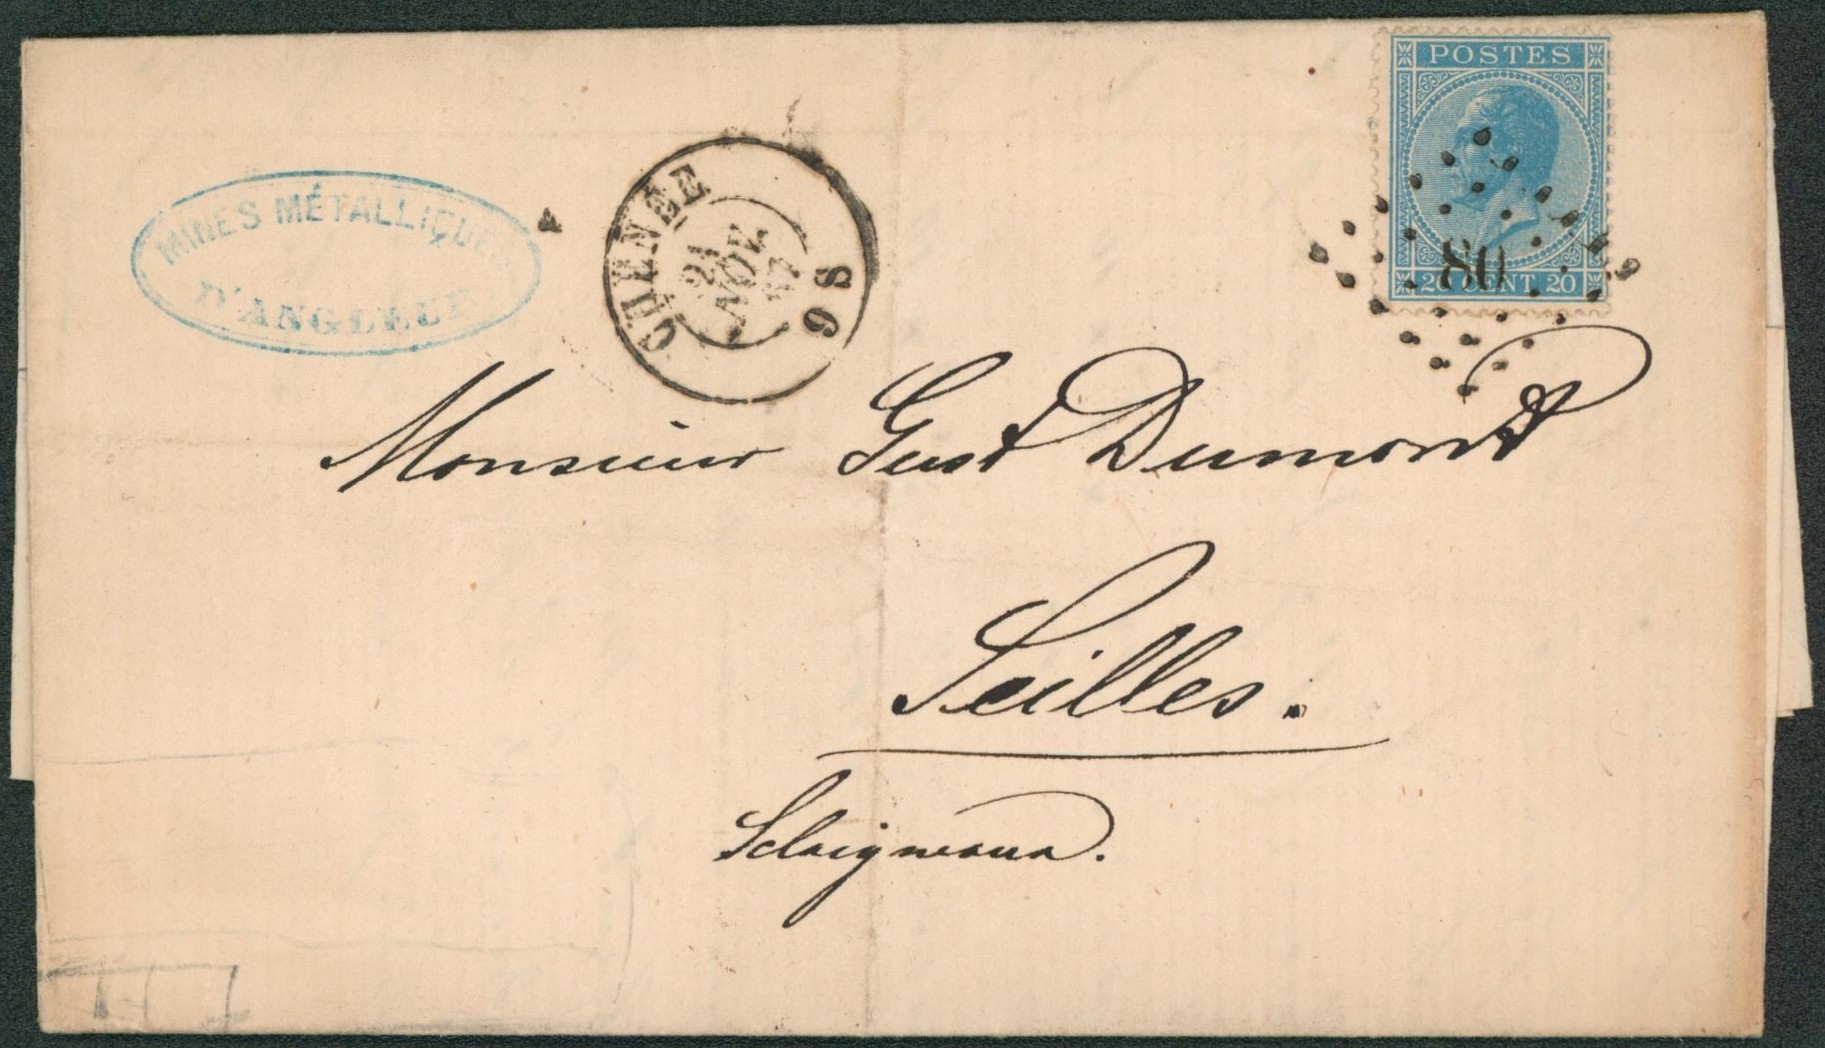 POSTES
20 CENT. 20
80
MINES MÉTALLIQUES
D'ANGLEUR
CHÊNÉE
21
NOV.
67
8 6
Monsieur Gust Dumont
Seilles.
Sclaigneaux.